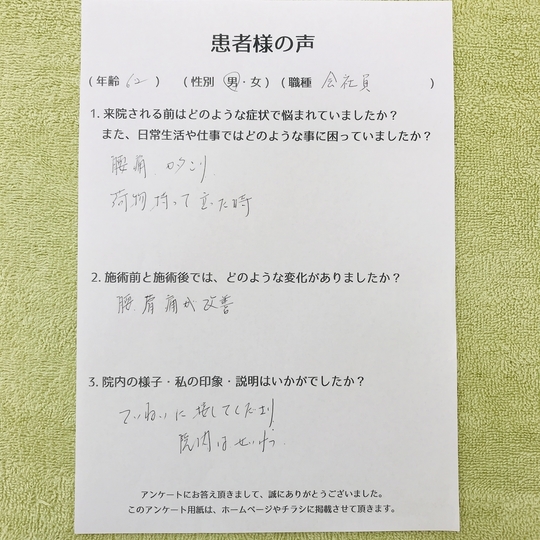 患者様の声
(年齢 62 ) (性別 男・女) (職種 会社員 )
1. 来院される前はどのような症状で悩まれていましたか？
また、日常生活や仕事ではどのような事に困っていましたか？
腰痛
荷物持って立った時
2. 施術前と施術後では、どのような変化がありましたか？
腰、肩痛が改善
3. 院内の様子・私の印象・説明はいかがでしたか？
ていねいに接してくださり
院内はせいけつ
アンケートにお答え頂きまして、誠にありがとうございました。
このアンケート用紙は、ホームページやチラシに掲載させて頂きます。